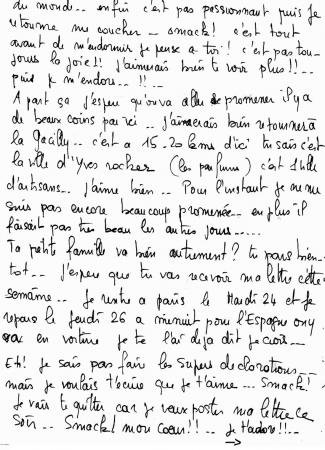 du monde.. enfin c'est pas passionnant puis je
retourne me coucher.. smack! c'est tout
avant de m'endormir je pense a toi! c'est pas tou-
jours la joie!! j'aimerais bien te voir plus!!..
puis je m'endors.. !!..
A part ça j'espère qu'on va aller se promener il y a
de beaux coins par ici.. j'aimerais bien retourner à
la Gacilly.. c'est a 15-20 kms d'ici tu sais c'est
la ville d'Yves rocher (les parfums) c'est 1 ville
d'artisans.. j'aime bien.. Pour l'instant je ne me
suis pas encore beaucoup promenée.. en plus il
faisait pas très beau les autres jours.....
Ta petite famille va bien autrement? tu pars bien-
tot.. j'espère que tu vas recevoir ma lettre cette
semaine.. Je rentre a paris le Mardi 24 et je
repars le jeudi 26 a minuit pour l'Espagne on y
va en voiture je te l'ai déja dit je crois..
Eh! Je sais pas faire les supers declarations..
mais je voulais t'écrire que je t'aime... Smack!
Je vais te quitter car je veux poster ma lettre ce
soir.. Smack! mon Coeur!!.. Je t'adore!!..
→